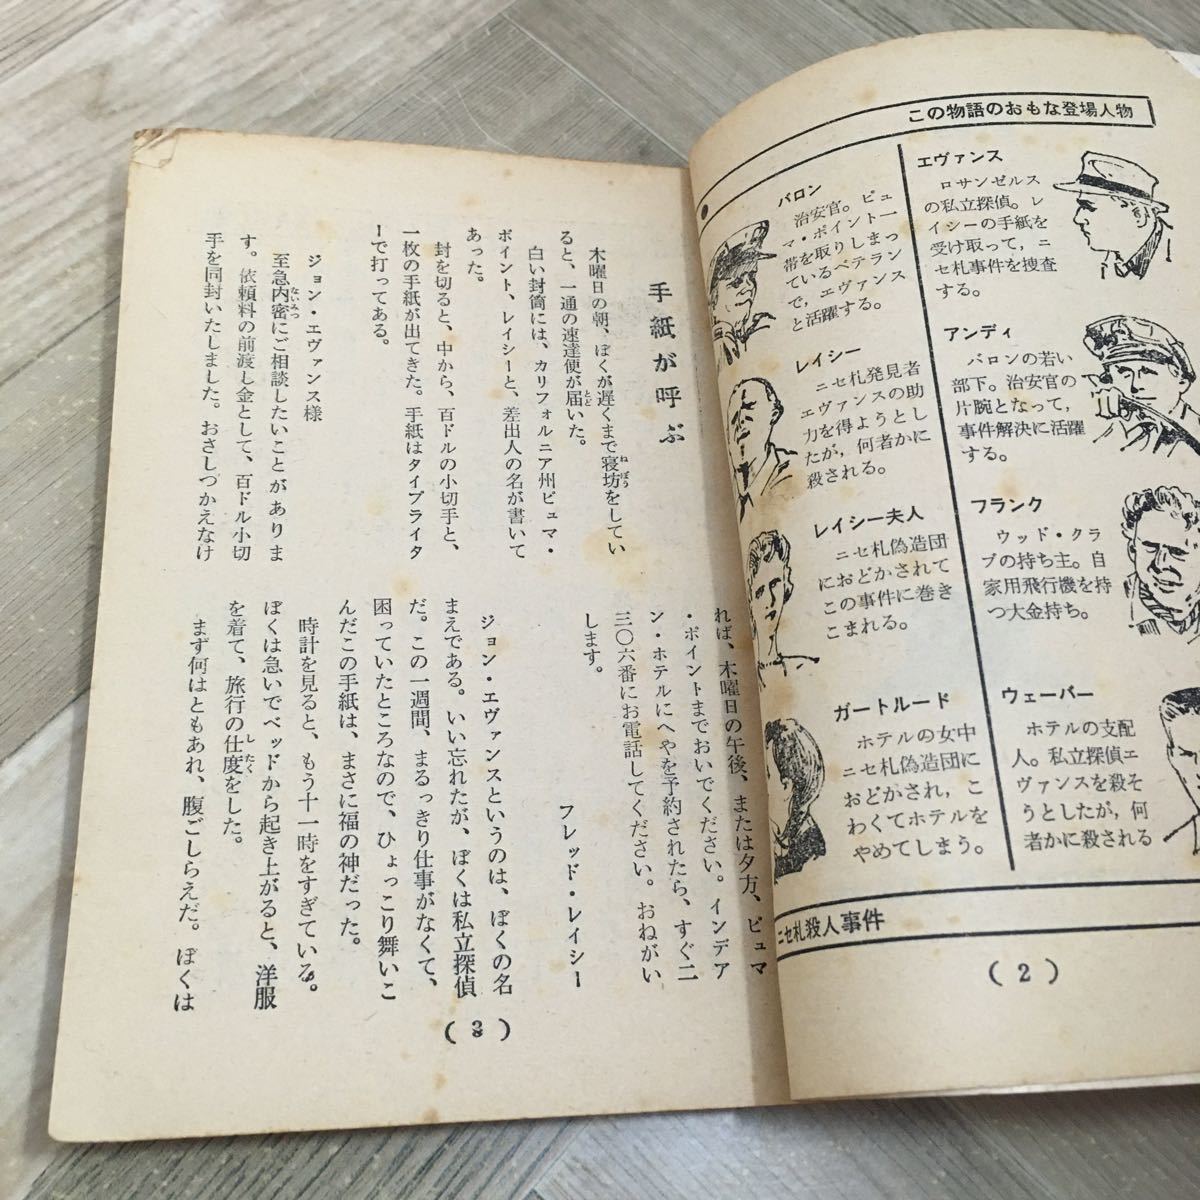 この物語のおもな登場人物
エヴァンス
ロサンゼルス
の私立探偵。レ
イシーの手紙を
受け取って，ニ
セ札事件を捜査
する。
アンディ
バロンの若い
部下。治安官の
片腕となって，
事件解決に活躍
する。
フランク
ウッド・クラ
ブの持ち主。自
家用飛行機を持
つ大金持ち。
ウェーバー
ホテルの支配
人。私立探偵エ
ヴァンスを殺そ
うとしたが，何
者かに殺される
バロン
治安官。ピュ
マ・ポイント一
帯を取りしまっ
ているベテラン
で，エヴァンス
と活躍する。
レイシー
ニセ札発見者
エヴァンスの助
力を得ようとし
たが，何者かに
殺される。
レイシー夫人
ニセ札偽造団
におどかされて
この事件に巻き
こまれる。
ガートルード
ホテルの女中
ニセ札偽造団に
おどかされ，こ
わくてホテルを
やめてしまう。
ニセ札殺人事件
(2)
手紙が呼ぶ
木曜日の朝、ぼくが遅くまで寝坊をしてい
ねぼう
ると、一通の速達便が届いた。
とど
白い封筒には、カリフォルニア州ピュマ・
ポイント、レイシーと、差出人の名が書いて
あった。
封を切ると、中から、百ドルの小切手と、
一枚の手紙が出てきた。手紙はタイプライタ
ーで打ってある。
ジョン・エヴァンス様
至急内密にご相談したいことがありま
ないみつ
す。依頼料の前渡し金として、百ドル小切
手を同封いたしました。おさしつかえなけ
れば、木曜日の午後、または夕方、ピュマ
・ポイントまでおいでください。インデア
ン・ホテルにへやを予約されたら、すぐ二
三〇六番にお電話してください。おねがい
します。
フレッド・レイシー
ジョン・エヴァンスというのは、ぼくの名
まえである。いい忘れたが、ぼくは私立探偵
だ。この一週間、まるっきり仕事がなくて、
困っていたところなので、ひょっこり舞いこ
んだこの手紙は、まさに福の神だった。
時計を見ると、もう十一時をすぎている。
ぼくは急いでベッドから起き上がると、洋服
を着て、旅行の仕度をした。
したく
まず何はともあれ、腹ごしらえだ。ぼくは
(3)